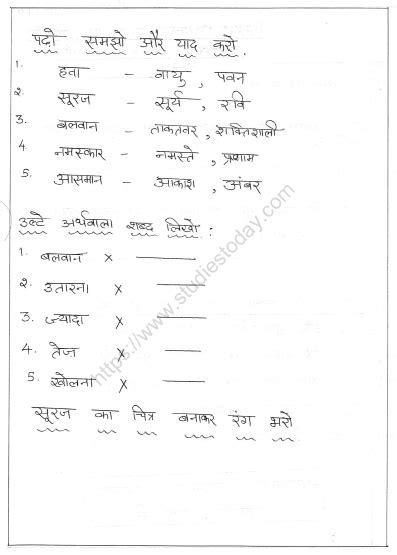 पदो समझो और याद करो.
1. हवा – वायु, पवन
2. सूरज – सूर्य, रवि
3. बलवान – ताकतवर, शक्तिशाली
4. नमस्कार – नमस्ते, प्रणाम
5. आसमान – आकाश, अंबर
उल्टे अर्थवाला शब्द लिखो :
1. बलवान x ______
2. उतारना x ______
3. ज्यादा x ______
4. तेज x ______
5. खोलना x ______
सूरज का चित्र बनाकर रंग भरो
https://www.studiestoday.com